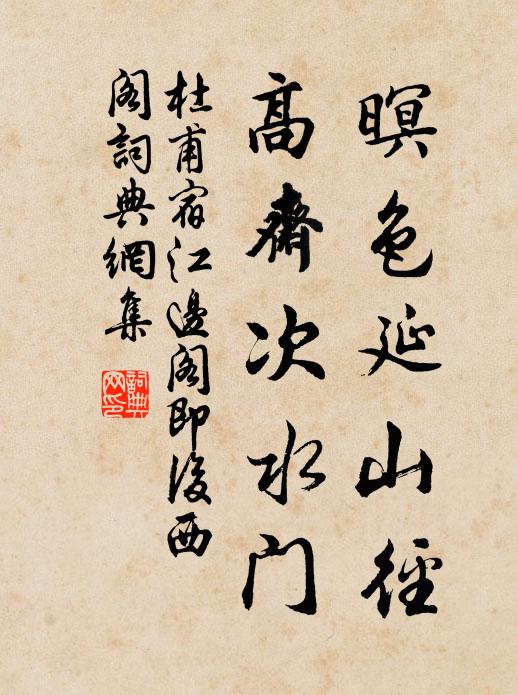 暝色延山徑
高齋次水门
杜甫宿江邊阁即後西
阁詞典網集
詞典
网印